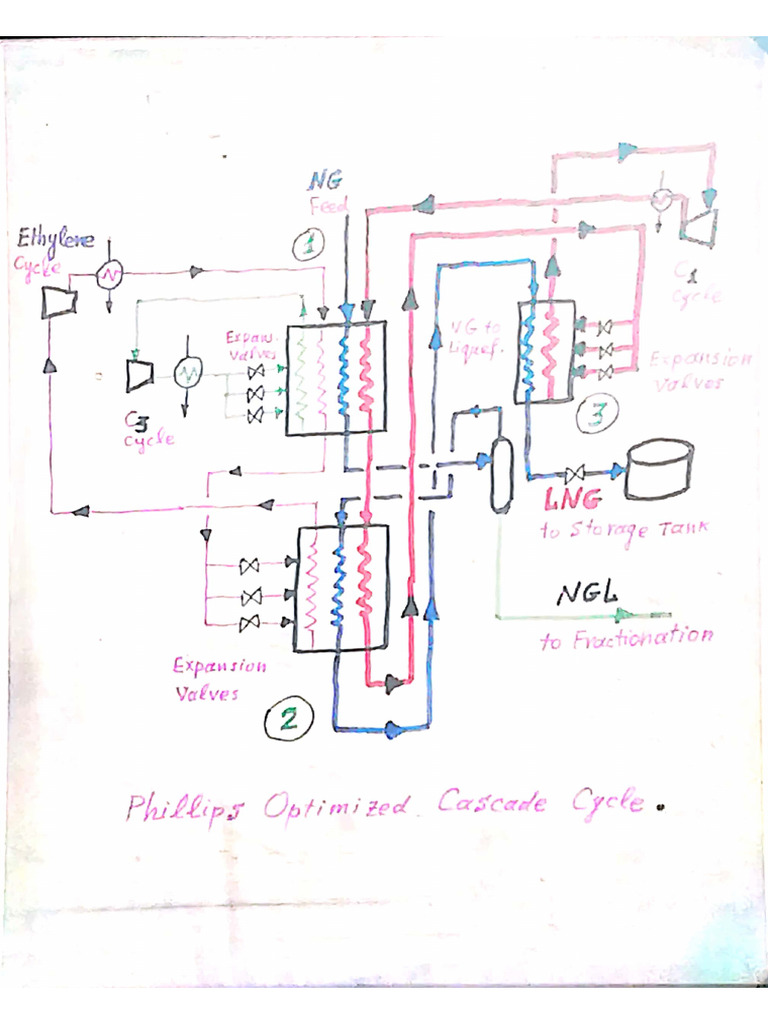 NG
Feed
1
Ethylene
Cycle
Expan.
Valves
C3
Cycle
NG to
Liquef.
C1
Cycle
Expansion
Valves
3
LNG
to Storage Tank
NGL
to Fractionation
Expansion
Valves
2
Phillips Optimized Cascade Cycle.